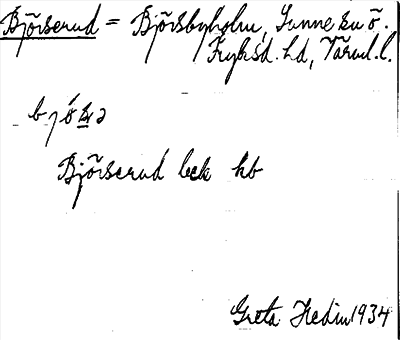 Björserud = Björsbyholm, Sunne sn ö.
Fryksd. hd, Värml. l.
Björserud beck hb
Greta Hedin 1934